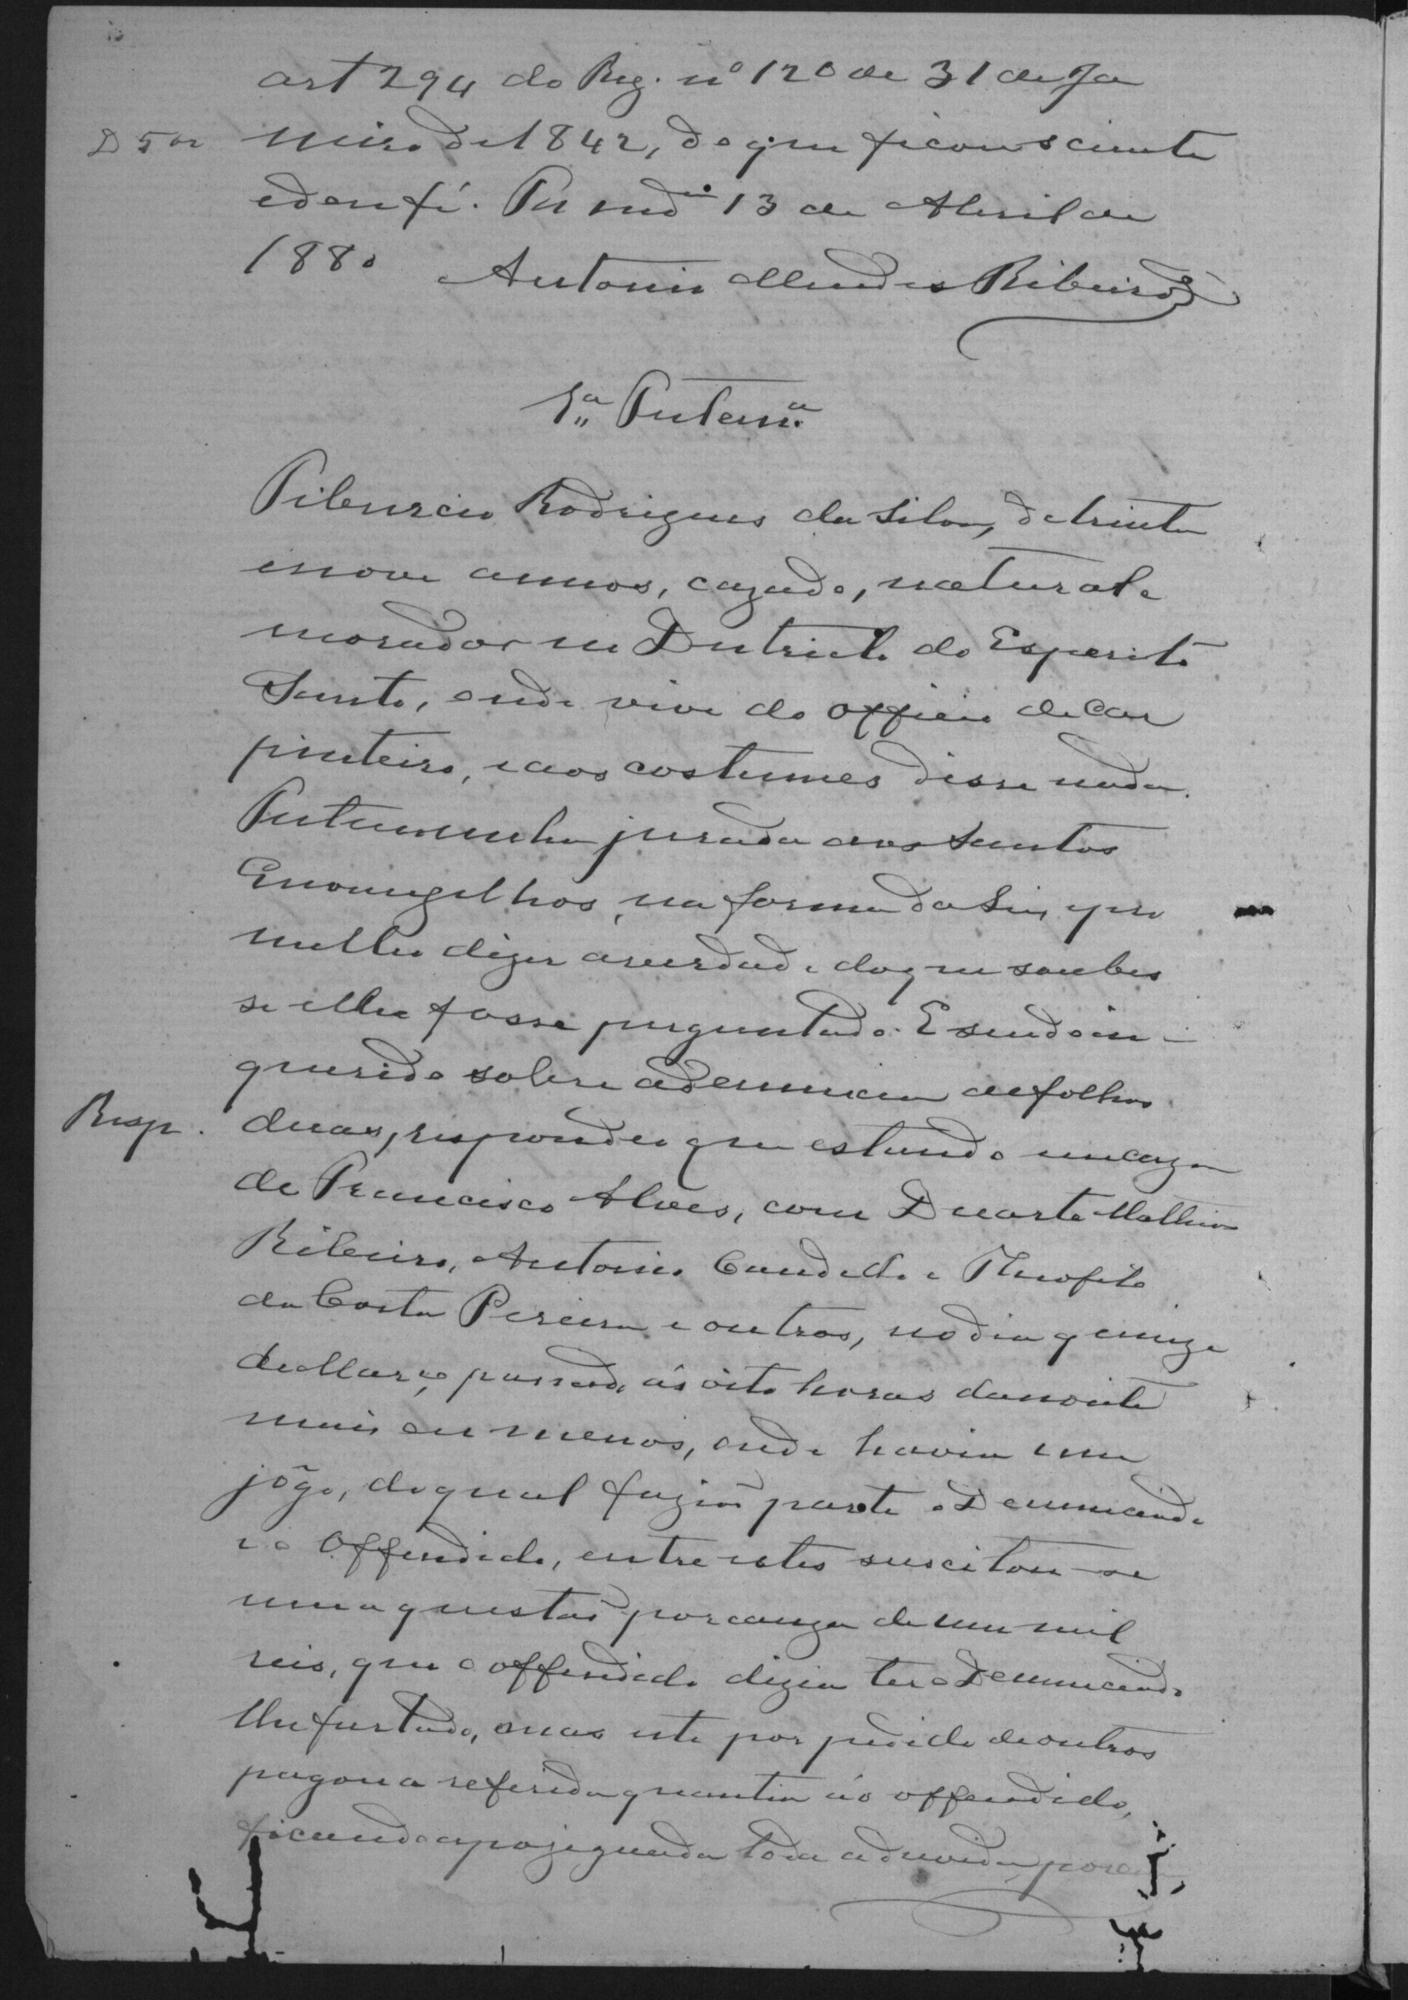 art 294 do Reg. nº 120 de 31 de Ja
neiro de 1842, do que ficou sciente
e dou fé. 13 de Abril de
1880 Antonio Mendes Ribeiro
1ª Testemª
Tiburcio Rodrigues da Silva, de trinta
e nove annos, cazado, natural e
morador no Districto do Esperito
Santo, onde vive do officio de Car
pinteiro, e aos costumes disse nada.
Testemunha jurada aos Santos
Evangelhos, na forma da Lei, e pro
metteu dizer a verdade do que soubes
se e lhe fosse perguntado. E sendo in-
querido sobre a denuncia de folhas
Resp. duas, respondeo que estando em caza
de Francisco Alves, com Duarte Mathias
Ribeiro, Antonio Candido e Theofilo
da Costa Pereira e outros, no dia quinze
de Março passado, ás oito horas da noite
mais ou menos, onde havia um
jôgo, do qual fazião parte o Denunciado
e o Offendido, entre estes suscitou-se
uma questão por cauza de um mil
reis, que o offendido dizia ter o Denunciado
lhe furtado, mas este por pedido de outros
pagou a referida quantia áo offendido,
ficando apaziguada toda a duvida, porem